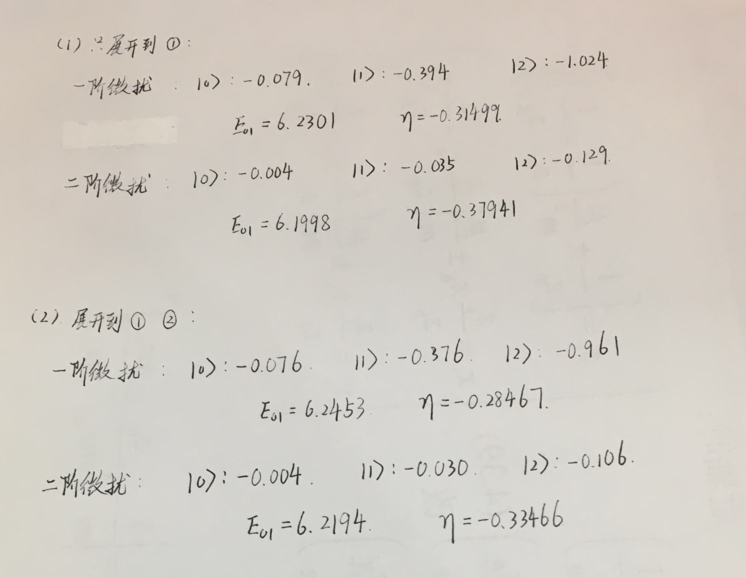 (1) 只展开到 ①:
一阶微扰 : |0>: -0.079. |1>: -0.394 |2>: -1.024
E01 = 6.2301 η=-0.31499.
二阶微扰 : |0>: -0.004 |1>: -0.035 |2>: -0.129.
E01 = 6.1998 η=-0.37941
(2) 展开到 ① ②:
一阶微扰 : |0>: -0.076. |1>: -0.376. |2>: -0.961
E01 = 6.2453 η=-0.28467.
二阶微扰: |0>: -0.004. |1>: -0.030. |2>: -0.106.
E01 = 6.2194. η=-0.33466